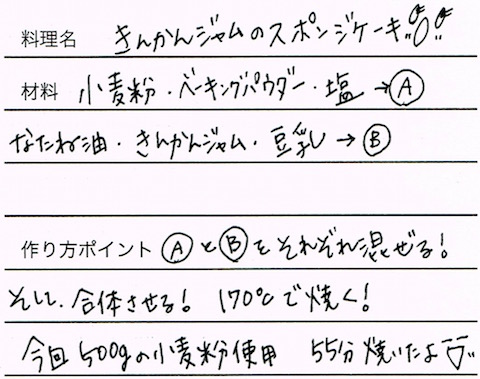 料理名 きんかんジャムのスポンジケーキ
材料 小麦粉・ベーキングパウダー・塩→Ⓐ
なたね油・きんかんジャム・豆乳→Ⓑ
作り方ポイント ⒶとⒷをそれぞれ混ぜる!
そして、合体させる! 170℃で焼く!
今回500gの小麦粉使用 55分焼いたよ